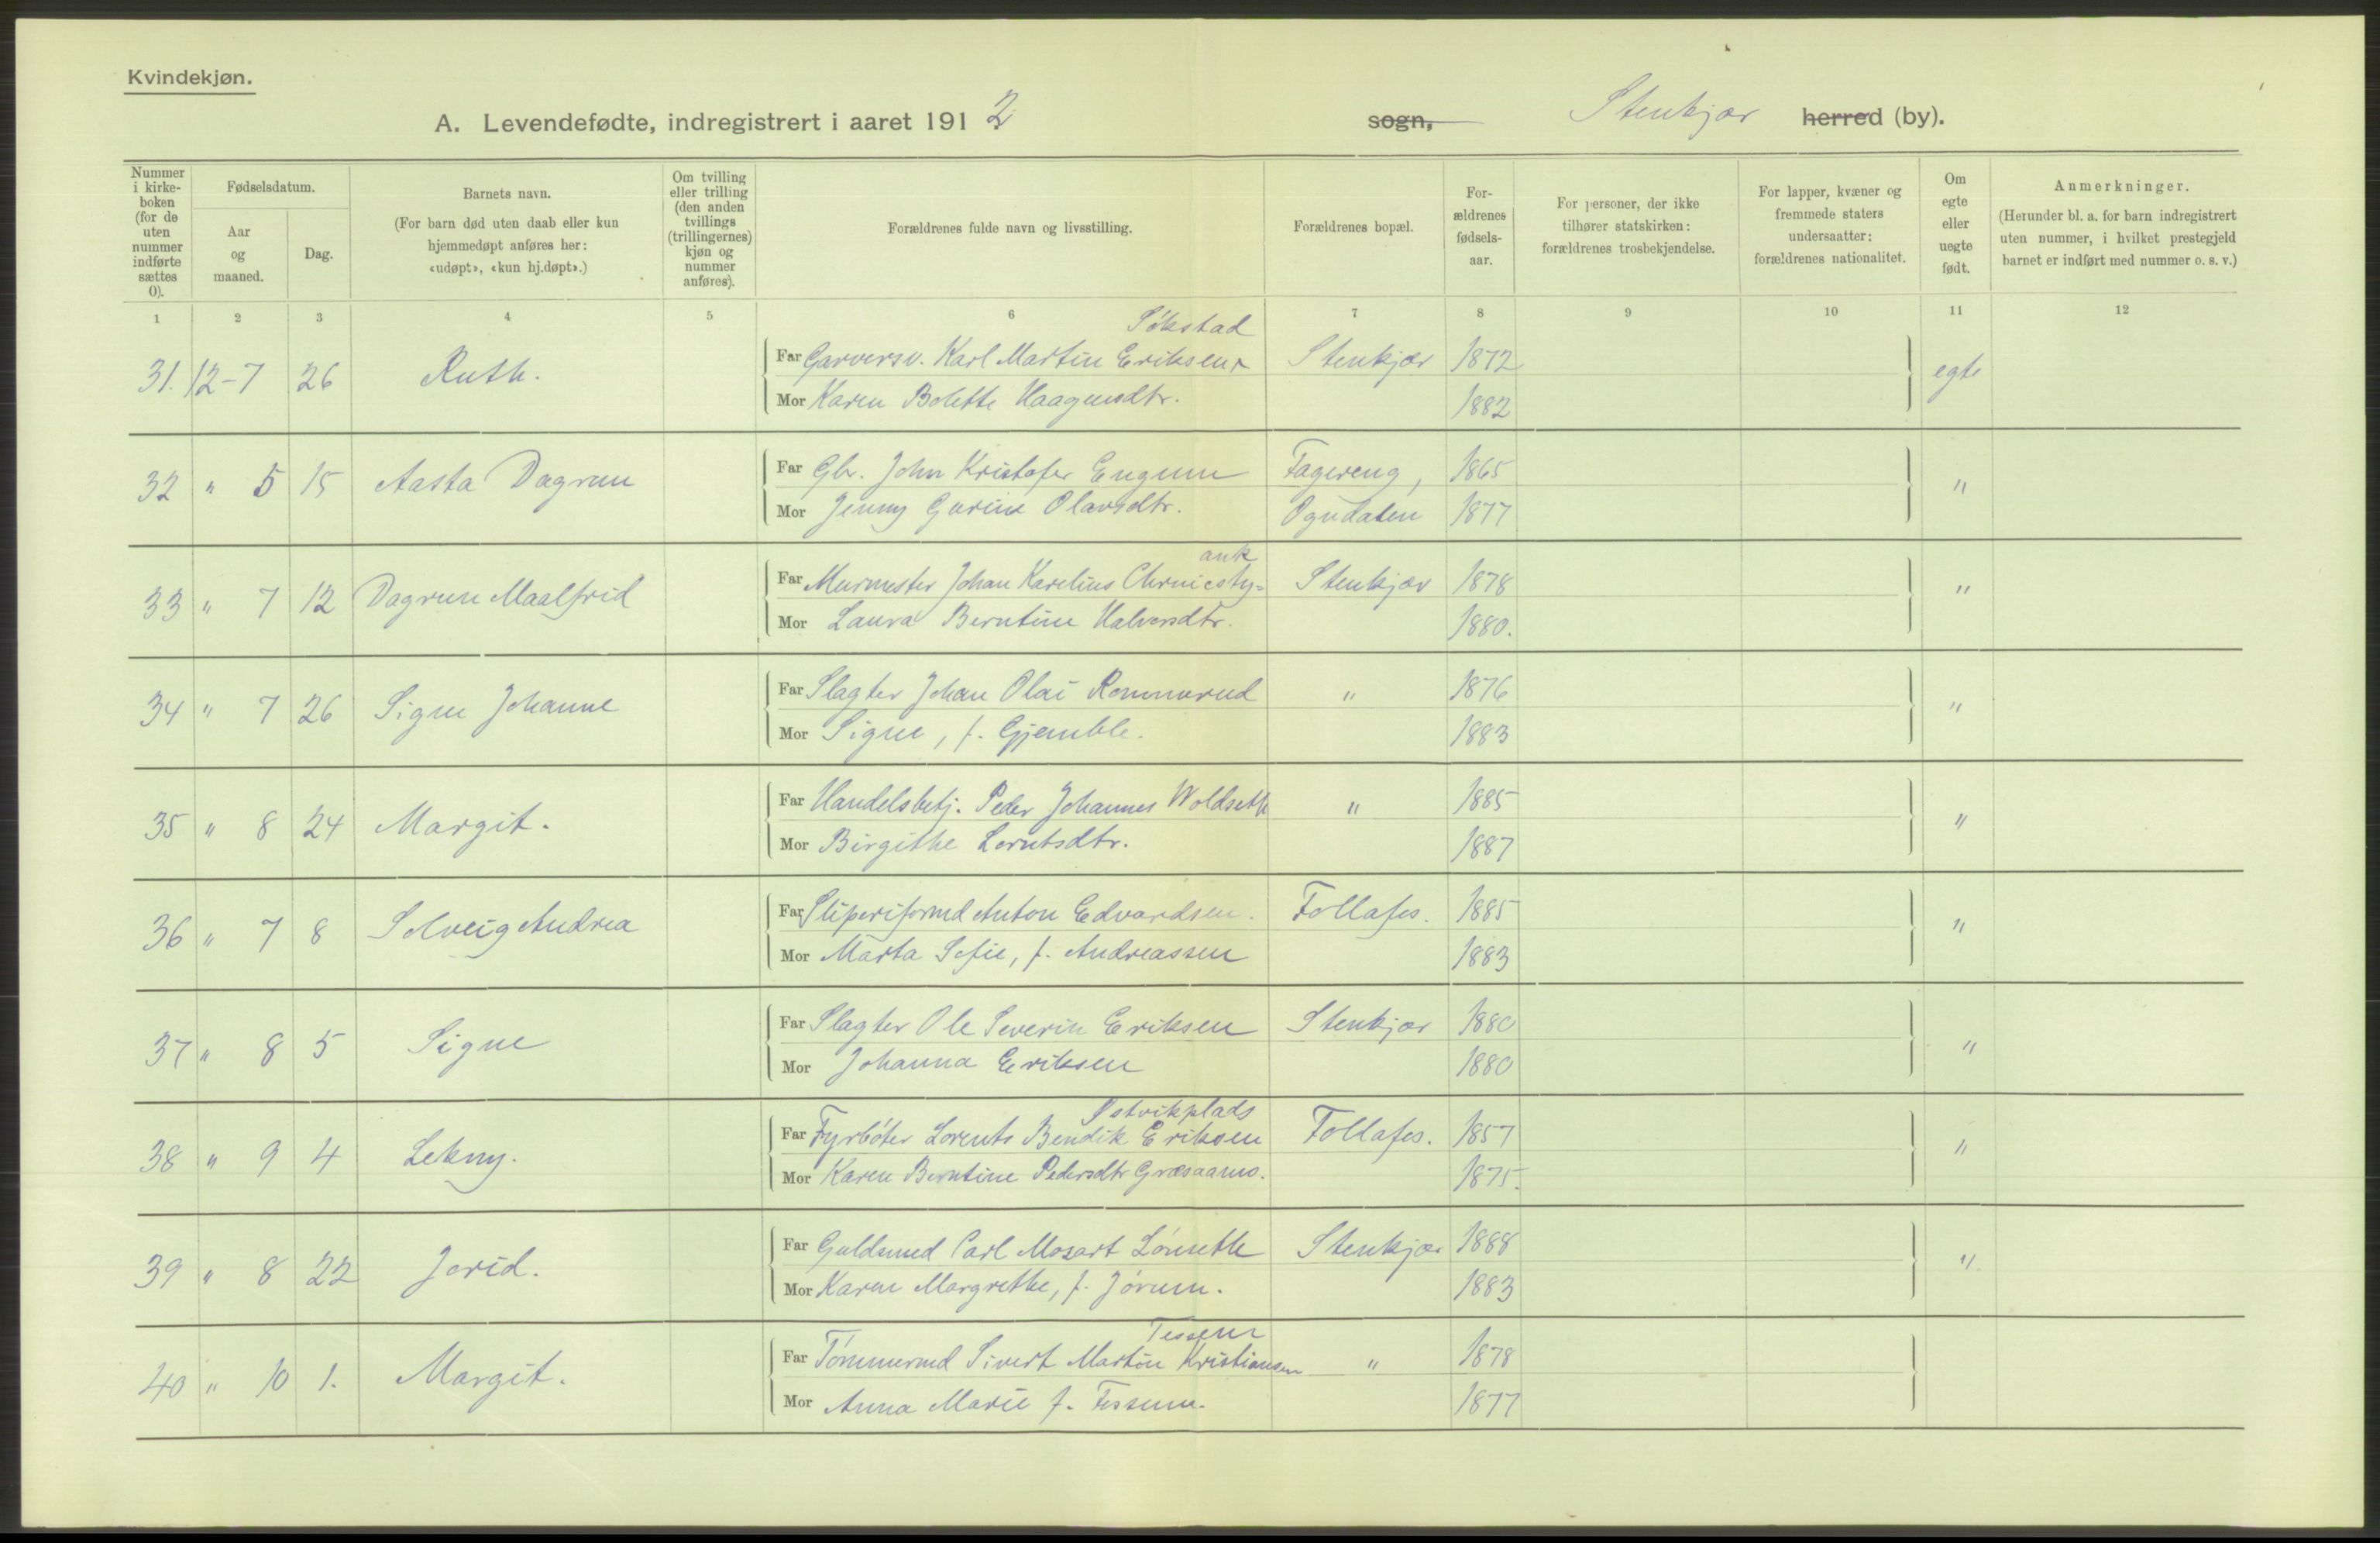 Kvindekjøn.
A. Levendefødte, indregistrert i aaret 1912 sogn, Stenkjær herred (by).
Nummer i kirke- boken (for de uten nummer indførte sættes 0).
Fødselsdatum.
Aar og maaned.
Dag.
Barnets navn.
(For barn død uten daab eller kun hjemmedøpt anføres her: «udøpt», «kun hj.døpt».)
Om tvilling eller trilling (den anden tvillings (trillingernes) kjøn og nummer anføres).
Forældrenes fulde navn og livsstilling.
Forældrenes bopæl.
For- ældrenes fødsels- aar.
For personer, der ikke tilhører statskirken: forældrenes trosbekjendelse.
For lapper, kvæner og fremmede staters undersaatter: forældrenes nationalitet.
Om egte eller uegte født.
Anmerkninger.
(Herunder bl. a. for barn indregistrert uten nummer, i hvilket prestegjeld barnet er indført med nummer o. s. v.)
1 2 3 4 5 6 7 8 9 10 11 12
Søkstad
31. 12-7 26 Ruth. Far Garversv. Karl Martin Eriksen Stenkjær 1872 egte
Mor Karen Bolette Haagensdtr. 1882
32 " 5 15 Aasta Dagrun Far Gbr. John Kristofer Engum Fagereng, 1865 "
Mor Jenny Gurine Olausdtr. Ogndalen 1877
ank
33 " 7 12 Dagrun Maalfrid Far Murmester Johan Karelius Chrniesty= Stenkjær 1878 "
Mor Laura Berntine Halvorsdtr. 1880.
34 " 7 26 Signe Johanne Far Slagter Johan Olai Rommerud " 1876 "
Mor Signe, f. Gjemble. 1883
35 " 8 24 Margit. Far Handelsbetj. Peder Johannes Woldseth " 1885 "
Mor Birgithe Lorntsdtr. 1887
36 " 7 8 Solveig Andrea Far Sliperiformd Anton Edvardsen. Follafos. 1885 "
Mor Marta Sofie, f. Andreassen 1883
37 " 8 5 Signe Far Slagter Ole Severin Eriksen Stenkjær 1880 "
Mor Johanna Eriksen 1880
Østvikplads
38 " 9 4 Lekny. Far Fyrbøter Lorents Bendik Eriksen Follafos. 1857 "
Mor Karen Berntine Pedersdtr Græsaamo. 1875.
39 " 8 22 Jorid. Far Guldsmed Carl Mozart Lønseth Stenkjær 1888 "
Mor Karen Margrethe, f. Jørum. 1883
Tessem
40 " 10 1. Margit. Far Tømmermd Sivert Martin Kristiansen " 1878
Mor Anna Marie f. Tessem. 1877